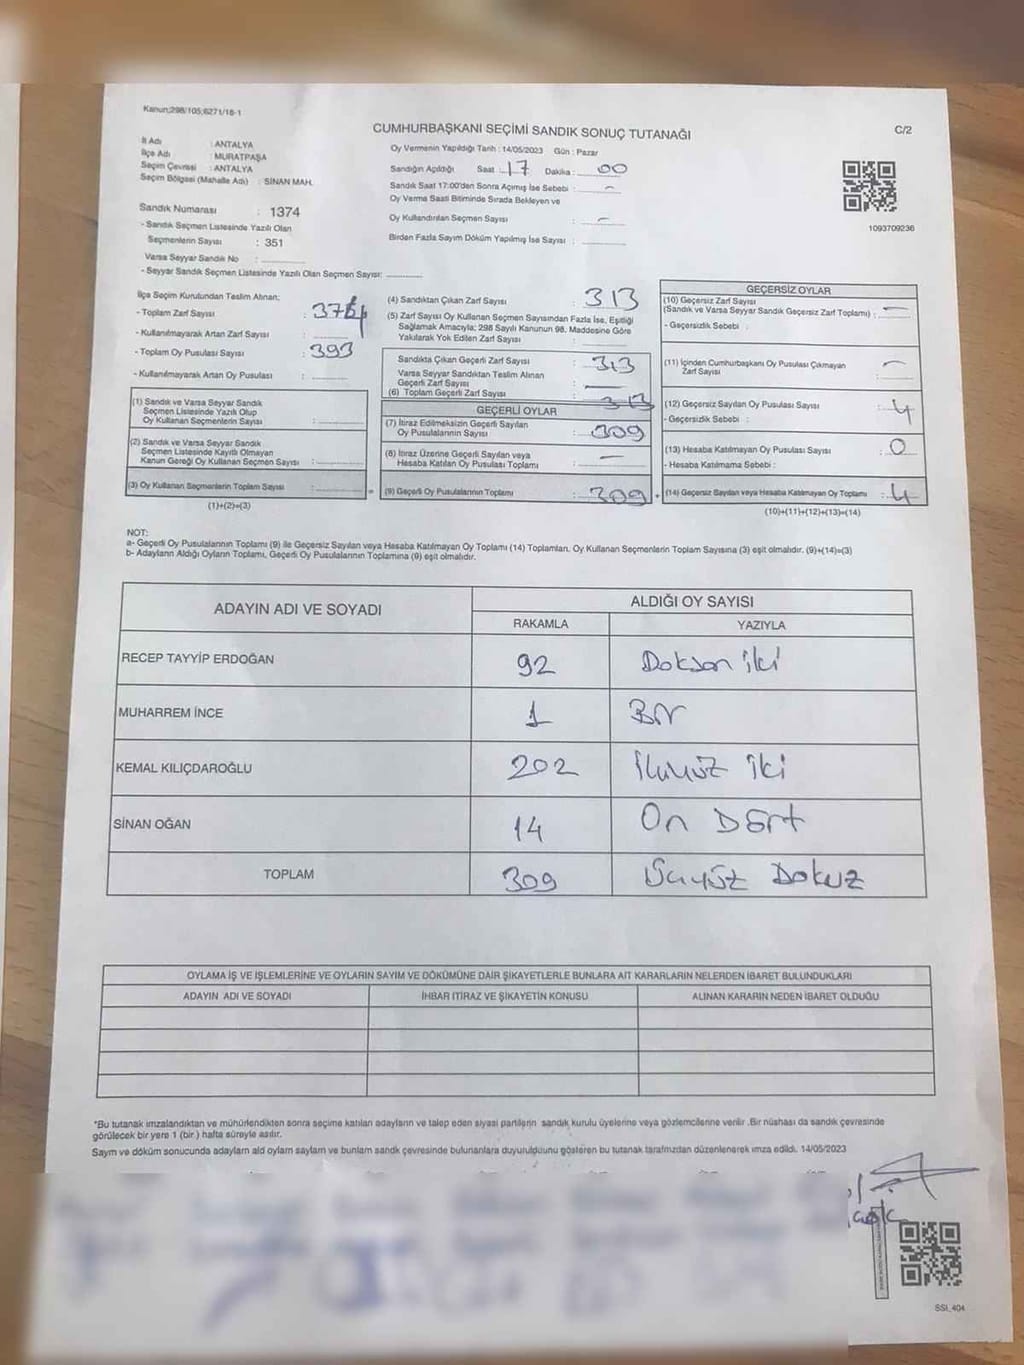 Kanun;298/105;6271/18-1
C/2
CUMHURBAŞKANI SEÇİMİ SANDIK SONUÇ TUTANAĞI
İl Adı : ANTALYA
İlçe Adı : MURATPAŞA
Seçim Çevresi : ANTALYA
Seçim Bölgesi (Mahalle Adı) : SİNAN MAH.
Sandık Numarası : 1374
- Sandık Seçmen Listesinde Yazılı Olan
Seçmenlerin Sayısı : 351
Varsa Seyyar Sandık No :
- Seyyar Sandık Seçmen Listesinde Yazılı Olan Seçmen Sayısı:
Oy Vermenin Yapıldığı Tarih : 14/05/2023 Gün : Pazar
Sandığın Açıldığı Saat : 17 Dakika : 00
Sandık Saat 17:00'den Sonra Açımış İse Sebebi :
Oy Verme Saati Bitiminde Sırada Bekleyen ve
Oy Kullandırılan Seçmen Sayısı :
Birden Fazla Sayım Döküm Yapılmış İse Sayısı :
1093709236
İlçe Seçim Kurulundan Teslim Alınan;
- Toplam Zarf Sayısı :
- Kullanılmayarak Artan Zarf Sayısı :
- Toplam Oy Pusulası Sayısı : 393
- Kullanılmayarak Artan Oy Pusulası :
(1) Sandık ve Varsa Seyyar Sandık
Seçmen Listesinde Yazılı Olup
Oy Kullanan Seçmenlerin Sayısı :
(2) Sandık ve Varsa Seyyar Sandık
Seçmen Listesinde Kayıtlı Olmayan
Kanun Gereği Oy Kullanan Seçmen Sayısı :
(3) Oy Kullanan Seçmenlerin Toplam Sayısı :
(1)+(2)=(3)
(4) Sandıktan Çıkan Zarf Sayısı : 313
(5) Zarf Sayısı Oy Kullanan Seçmen Sayısından Fazla İse, Eşitliği
Sağlamak Amacıyla; 298 Sayılı Kanunun 98. Maddesine Göre
Yakılarak Yok Edilen Zarf Sayısı :
Sandıkta Çıkan Geçerli Zarf Sayısı : 313
Varsa Seyyar Sandıktan Teslim Alınan
Geçerli Zarf Sayısı :
(6) Toplam Geçerli Zarf Sayısı : 313
GEÇERLİ OYLAR
(7) İtiraz Edilmeksizin Geçerli Sayılan
Oy Pusulalarının Sayısı : 309
(8) İtiraz Üzerine Geçerli Sayılan veya
Hesaba Katılan Oy Pusulası Toplamı :
= (9) Geçerli Oy Pusulalarının Toplamı : 309 +
GEÇERSİZ OYLAR
(10) Geçersiz Zarf Sayısı
(Sandık ve Varsa Seyyar Sandık Geçersiz Zarf Toplamı) :
- Geçersizlik Sebebi :
(11) İçinden Cumhurbaşkanı Oy Pusulası Çıkmayan
Zarf Sayısı :
(12) Geçersiz Sayılan Oy Pusulası Sayısı : 4
- Geçersizlik Sebebi :
(13) Hesaba Katılmayan Oy Pusulası Sayısı : 0
- Hesaba Katılmama Sebebi :
(14) Geçersiz Sayılan veya Hesaba Katılmayan Oy Toplamı : 4
(10)+(11)+(12)+(13)=(14)
NOT:
a- Geçerli Oy Pusulalarının Toplamı (9) ile Geçersiz Sayılan veya Hesaba Katılmayan Oy Toplamı (14) Toplamları, Oy Kullanan Seçmenlerin Toplam Sayısına (3) eşit olmalıdır. (9)+(14)=(3)
b- Adayların Aldığı Oyların Toplamı, Geçerli Oy Pusulalarının Toplamına (9) eşit olmalıdır.
ADAYIN ADI VE SOYADI ALDIĞI OY SAYISI
RAKAMLA YAZIYLA
RECEP TAYYİP ERDOĞAN 92 Doksan iki
MUHARREM İNCE 1 Bir
KEMAL KILIÇDAROĞLU 202 İkiyüz iki
SİNAN OĞAN 14 On Dört
TOPLAM 309 Üçyüz Dokuz
OYLAMA İŞ VE İŞLEMLERİNE VE OYLARIN SAYIM VE DÖKÜMÜNE DAİR ŞİKAYETLERLE BUNLARA AİT KARARLARIN NELERDEN İBARET BULUNDUKLARI
ADAYIN ADI VE SOYADI İHBAR İTİRAZ VE ŞİKAYETİN KONUSU ALINAN KARARIN NEDEN İBARET OLDUĞU
*Bu tutanak imzalandıktan ve mühürlendikten sonra seçime katılan adayların ve talep eden siyasi partilerin sandık kurulu üyelerine veya gözlemcilerine verilir .Bir nüshası da sandık çevresinde
görülecek bir yere 1 (bir ) hafta süreyle asılır.
Sayım ve döküm sonucunda adayların aldı oyların sayıları ve bunların sandk çevresinde bulunanlara duyurulduunu gösteren bu tutanak tarafımızdan düzenlenerek imza edildi. 14/05/2023
SSI_404